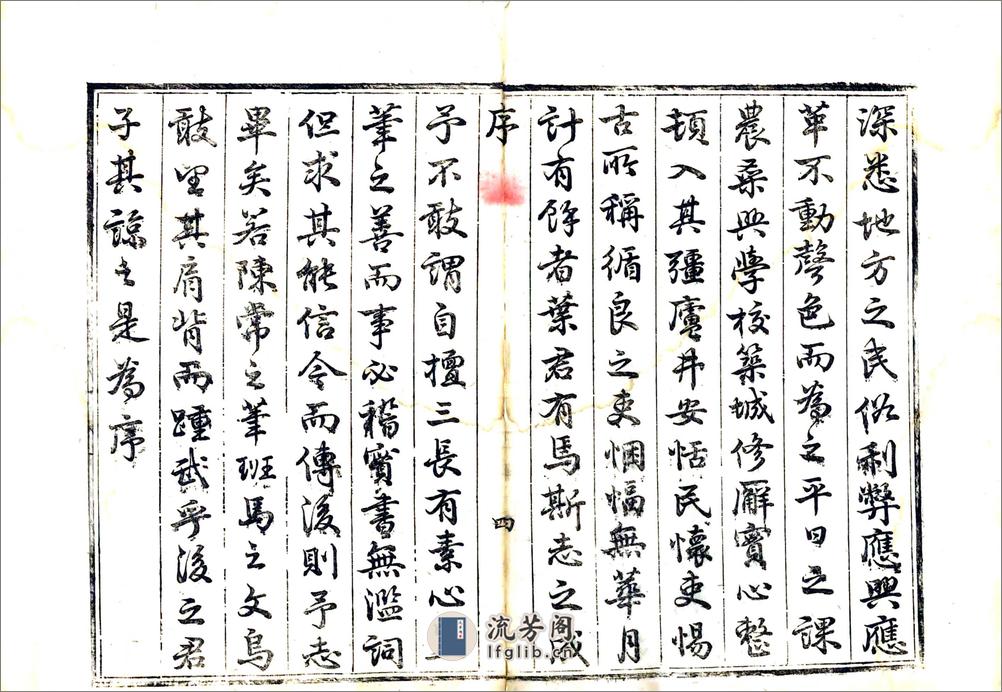 深悉地方之民俗利弊應興應
革不動聲色而為之平日之課
農桑興學校築城修廨實心整
頓入其疆廬井安恬民懷吏惕
古所稱循良之吏悃愊無華月
計有餘者葉君有焉斯志之成
序
四
予不敢謂自擅三長有素心
筆之善而事必稽實書無濫詞
但求其能信今而傳後則予志
畢矣若陳常之筆班馬之文烏
敢望其肩背而踵武乎後之君
子其諒之是為序
流芳阁
lfglib.cn